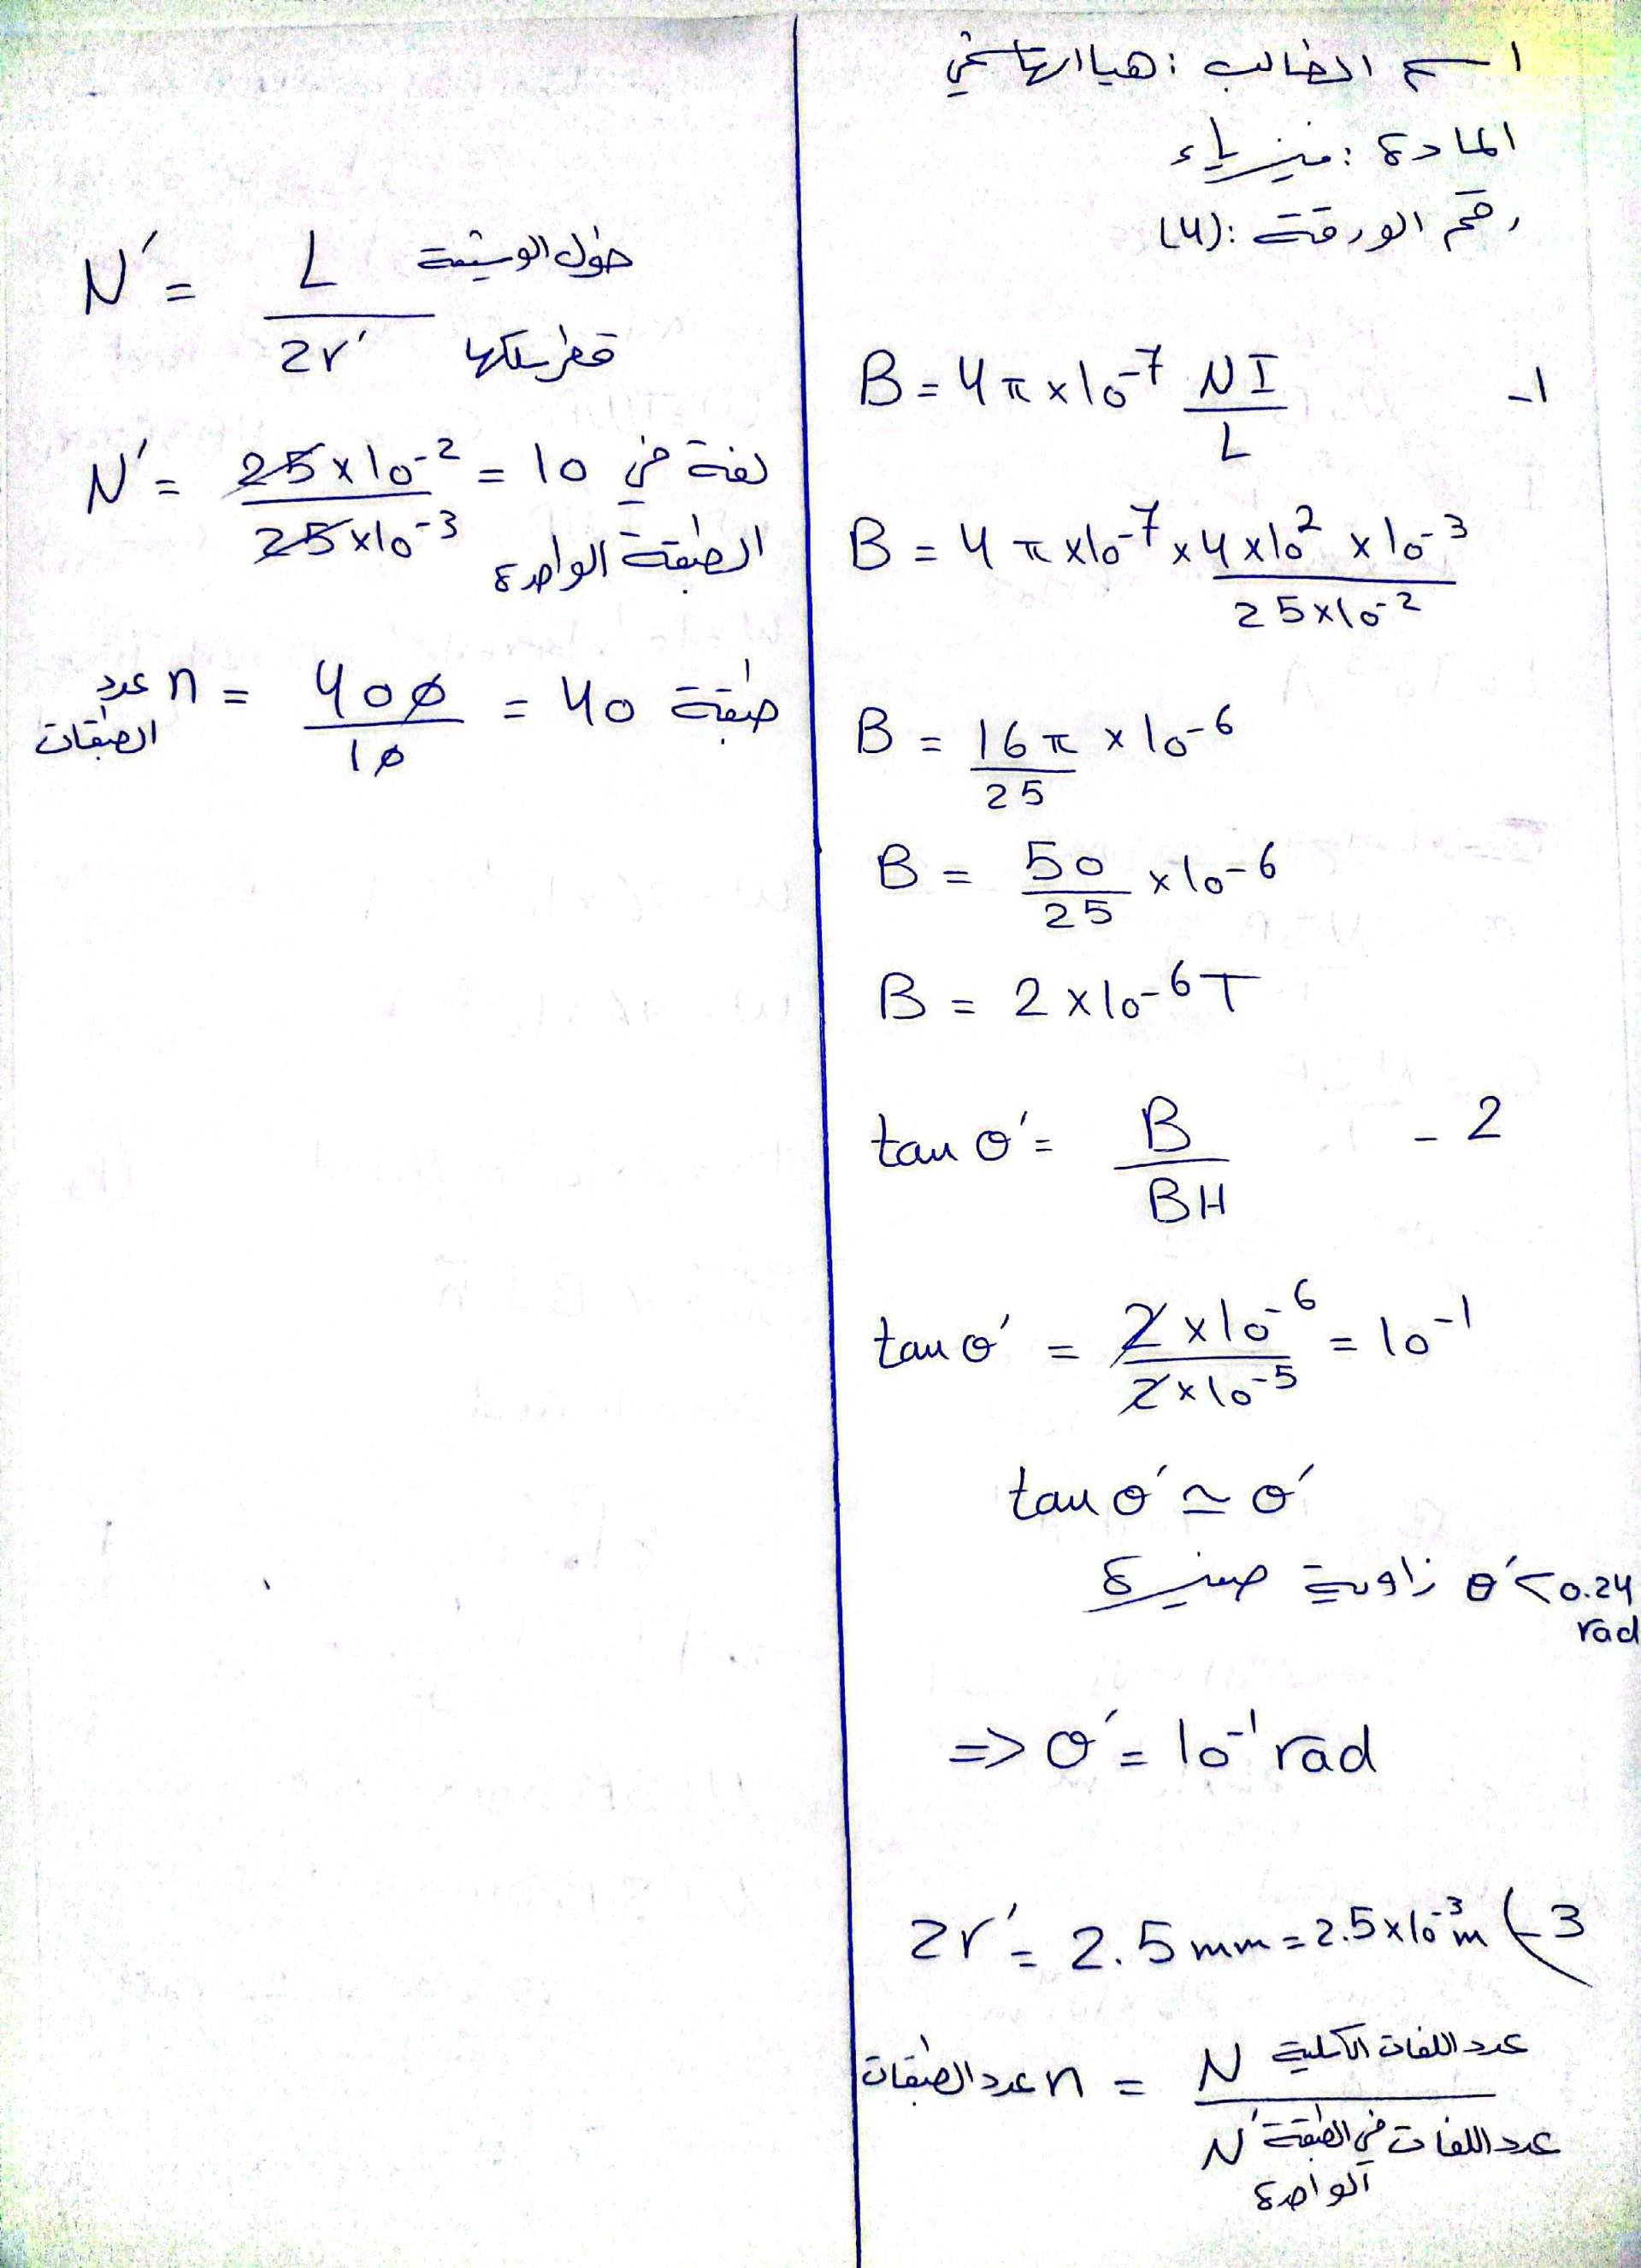 اسم الطالب : هيا الهاشمي
المادة : فيزياء
رقم الورقة : (4)
1- B = 4π×10⁻⁷ NI/L
B = 4π×10⁻⁷ × 4×10² × 10⁻³ / 25×10⁻²
B = 16π/25 × 10⁻⁶
B = 50/25 × 10⁻⁶
B = 2×10⁻⁶ T
2- tan θ' = B/BH
tan θ' = 2×10⁻⁶ / 2×10⁻⁵ = 10⁻¹
tan θ' ≃ θ'
θ' < 0.24 rad زاوية صغيرة
=> θ' = 10⁻¹ rad
3- 2r' = 2.5 mm = 2.5×10⁻³ m
عدد الطبقات n = N عدد اللفات الكلية / N' عدد اللفات في الطبقة الواحدة
N' = L طول الوشيعة / 2r' قطر سلكها
N' = 25×10⁻² / 25×10⁻³ = 10 لفة في الطبقة الواحدة
عدد الطبقات n = 400/10 = 40 طبقة